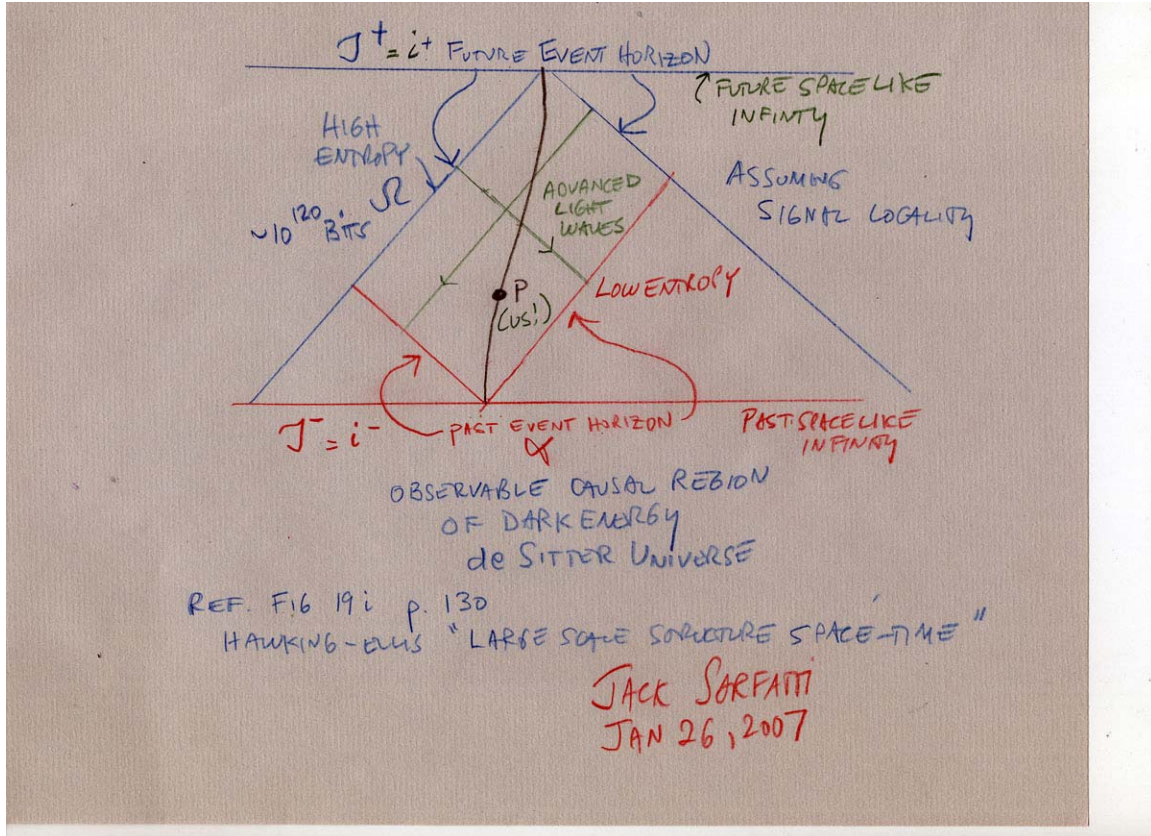 J⁺ = i⁺ FUTURE EVENT HORIZON
FUTURE SPACELIKE
INFINTY
HIGH
ENTROPY
Ω
~10¹²⁰ BITS
ADVANCED
LIGHT
WAVES
ASSUMING
SIGNAL LOCALITY
P
(US!)
LOW ENTROPY
J⁻ = i⁻
PAST EVENT HORIZON
α
PAST SPACELIKE
INFINITY
OBSERVABLE CAUSAL REGION
OF DARK ENERGY
de SITTER UNIVERSE
REF. FIG 19i p. 130
HAWKING-ELLIS "LARGE SCALE STRUCTURE SPACE-TIME"
JACK SARFATTI
JAN 26, 2007